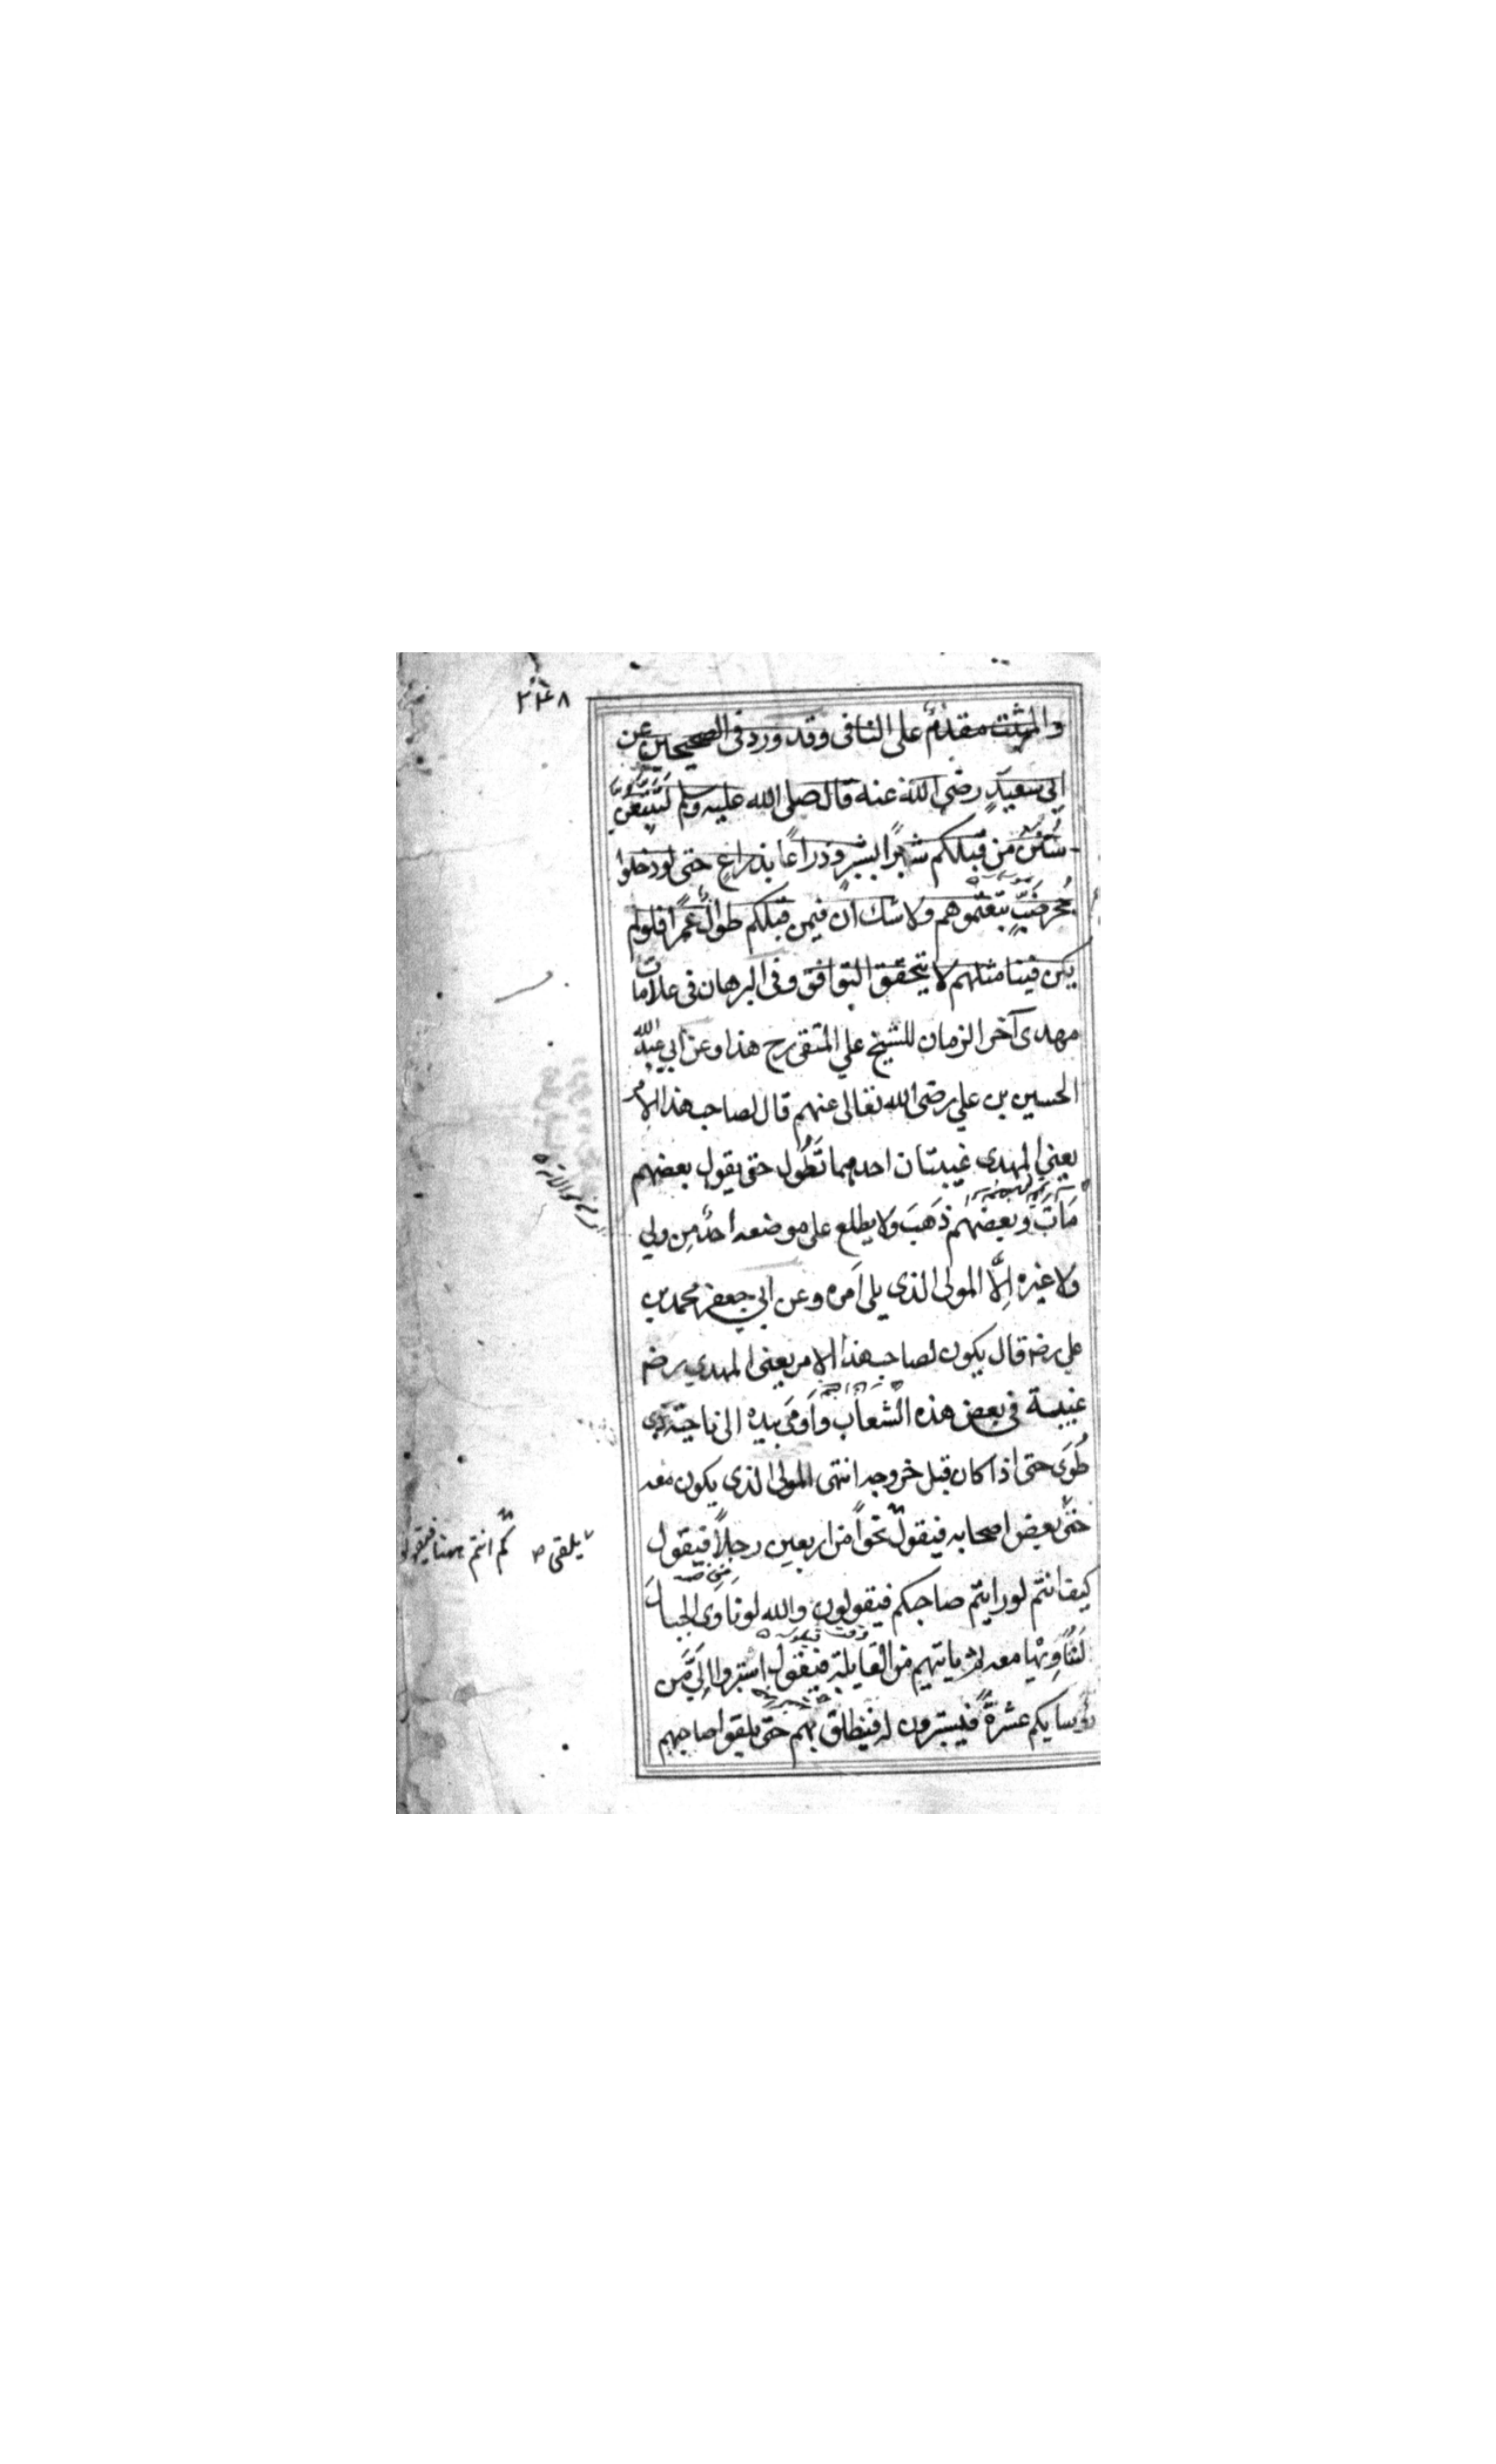 ٢٤٨
والمثبت مقدّم على النافى وقد ورد فى الصحيحين عن
ابى سعيدٍ رضى الله عنه قال صلى الله عليه وسلم لَتَتَّبِعُنَّ
سُنَنَ من قبلكم شبرًا بشبرٍ وذراعًا بذراعٍ حتى لو دخلوا
جُحر ضَبٍّ تبعتموهم ولا شك ان فيمن قبلكم طوالٌ عمرًا فلو لم
يكن فينا مثلهم لا يتحقق التوافق وفى البرهان فى علامات
مهدى آخر الزمان للشيخ علي المتقى رح هذا وعن ابي عبد الله
الحسين بن علي رضى الله تعالى عنهم قال لصاحب هذا الامر
يعني المهدى غيبتان احدهما تَطُول حتى يقول بعضهم
مَاتَ وبعضهم ذَهَبَ ولا يطلع على موضعه احدٌ مِن ولي
ولا غيره اِلَّا المولى الذى يلى اَمره وعن ابي جعفر محمد بن
على رضه قال يكون لصاحب هذا الامر يعنى المهدي رضه
غيبة في بعض هذه الشعاب واَومَى بيده الى ناحية ذى
طُوَى حتى اذا كان قبل خروجه انتهى المولى الذى يكون معه
حتى بعض اصحابه فيقول نحوًا من اربعين رجلاً فيقول
يلقى كم انتم ههنا فيقول
كيف انتم لو رايتم صاحبكم فيقولون والله لو نَاوَى الجبالَ
لَنُنَاوِيَنَّها معه ثم ياتيهم من القابلة فيقول استبروا اِلَيَّ من
رؤسايكم عشرةً فيستبرون له فينطلق بهم حتى يلقوا صاحبهم